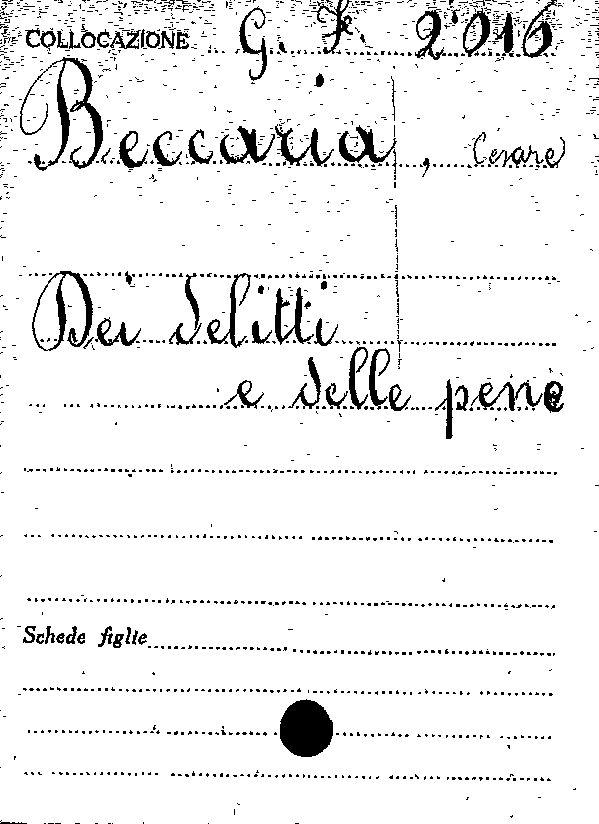 COLLOCAZIONE G. F. 2'016
Beccaria, Cesare
Dei delitti
e delle pene
Schede figlie